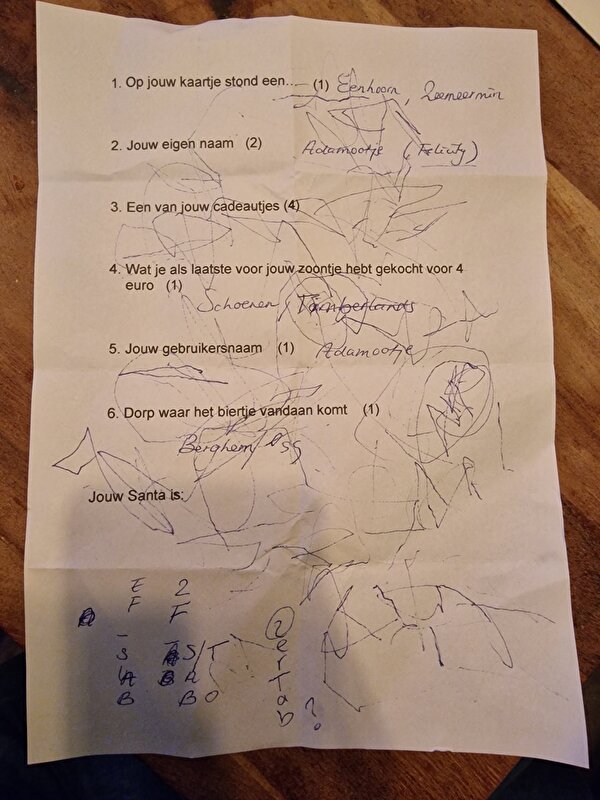 1. Op jouw kaartje stond een.... (1) Eenhoorn, Zeemeermin
2. Jouw eigen naam (2) Adamootje (Felicity)
3. Een van jouw cadeautjes (4)
4. Wat je als laatste voor jouw zoontje hebt gekocht voor 4
euro (1)
Schoenen / Timberlands
5. Jouw gebruikersnaam (1) Adamootje
6. Dorp waar het biertje vandaan komt (1)
Berghem Oss
Jouw Santa is:
E 2
F F
S S/T
A A
B B O
2
e
r
T
a
b
?